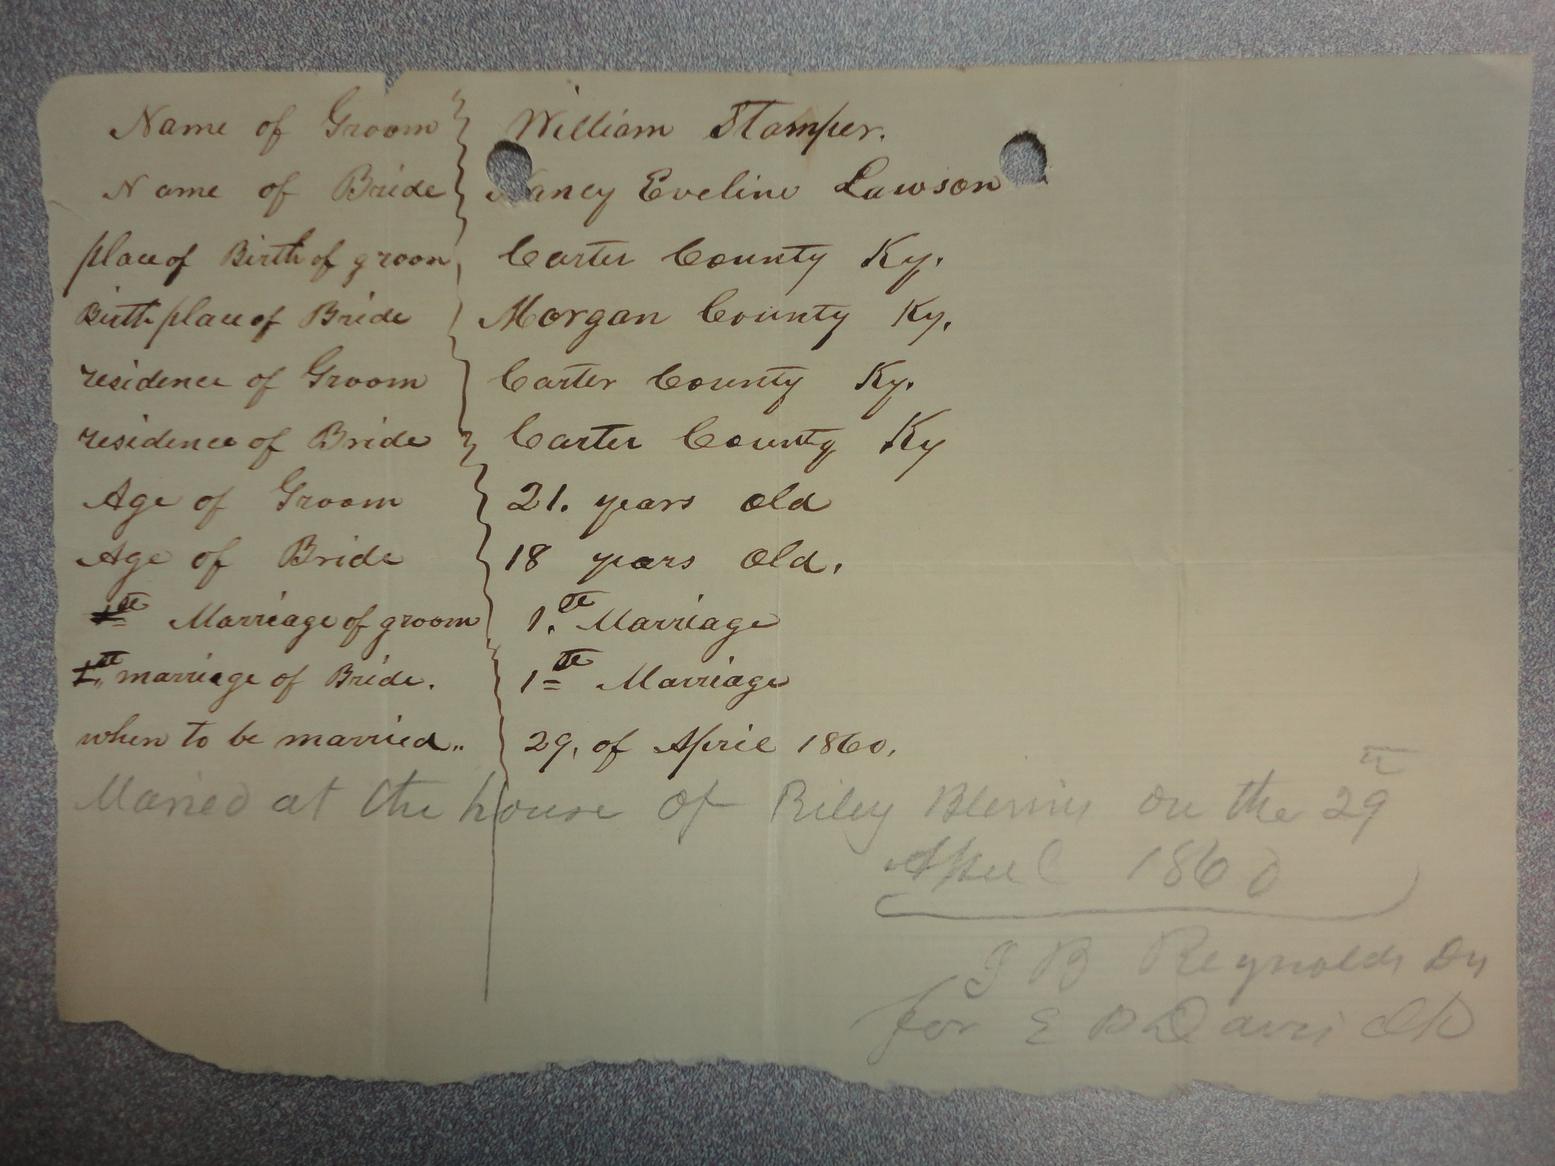 Name of Groom William Stamper.
Name of Bride Nancy Eveline Lawson
place of Birth of groom Carter County Ky.
Birth place of Bride Morgan County Ky.
residence of Groom Carter County Ky.
residence of Bride Carter County Ky
Age of Groom 21. years old
Age of Bride 18 years old.
1th Marriage of groom 1.th Marriage
1th marriage of Bride. 1th Marriage
when to be married.. 29, of April 1860.
Maried at the house of Riley on the 29th
April 1860
J B Reynolds Dy
for E D Davis Clk